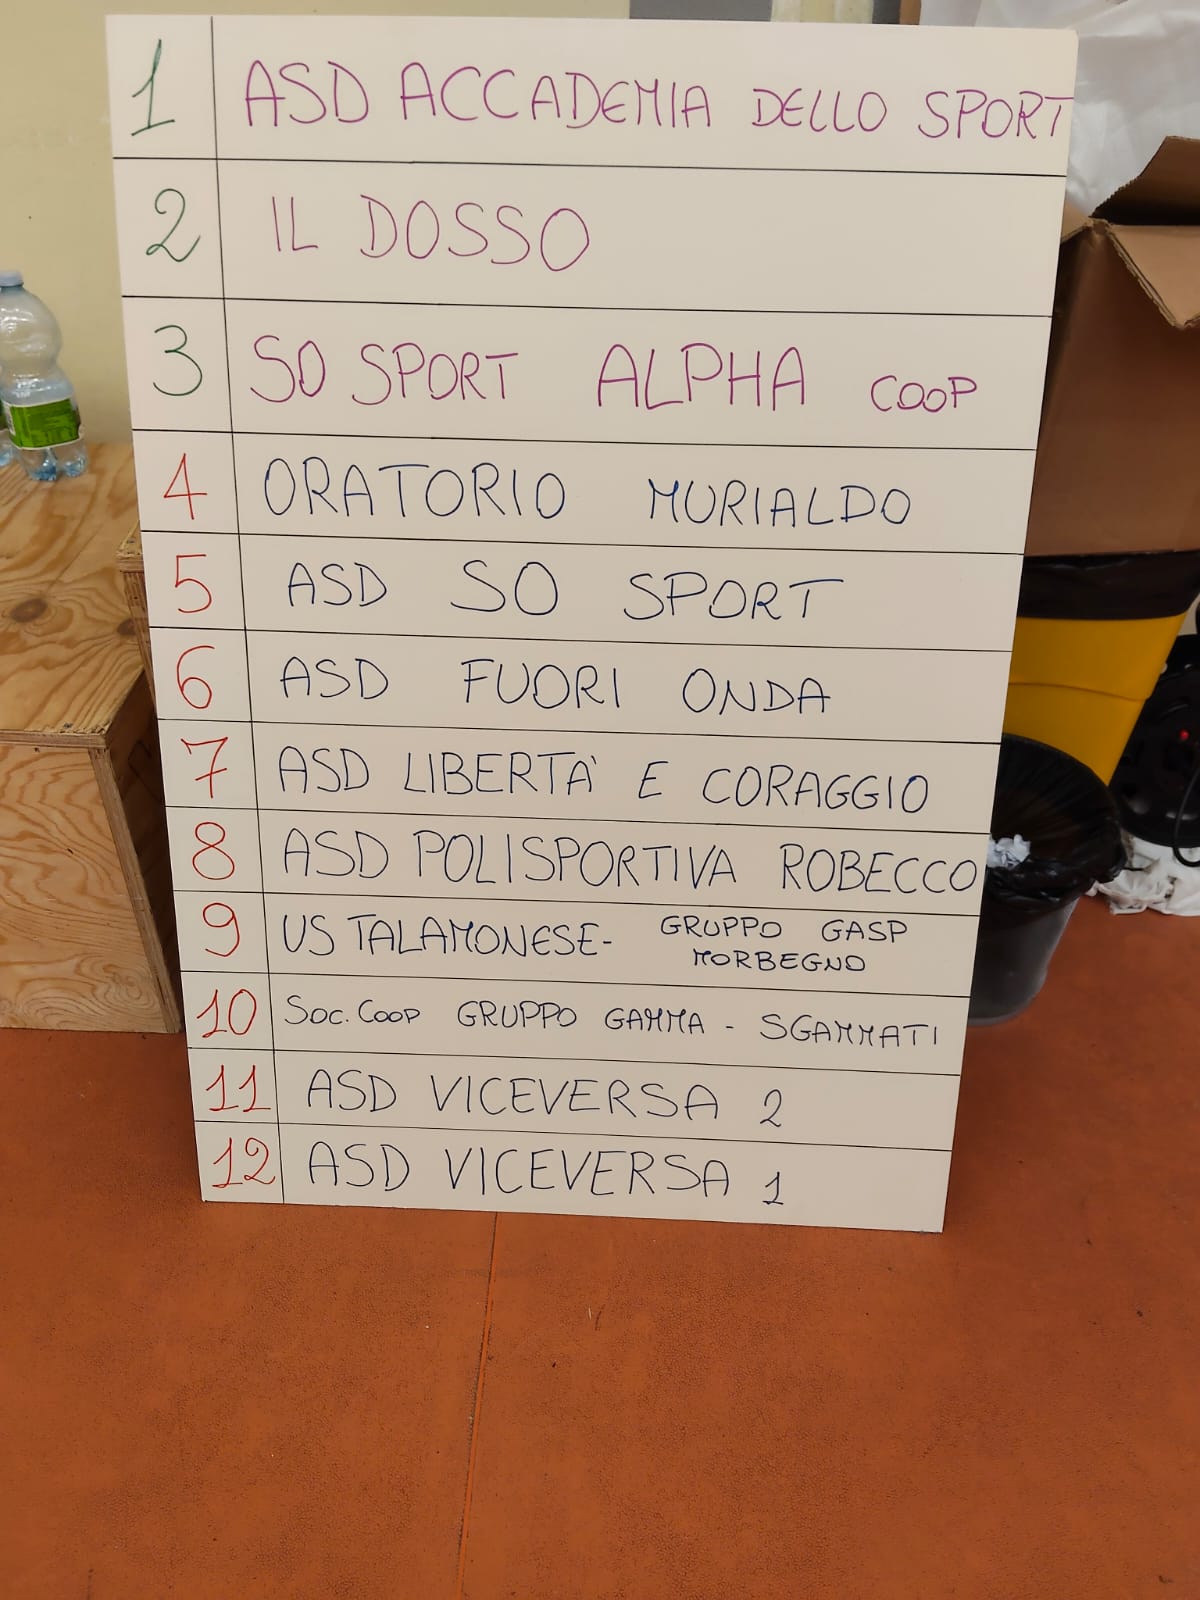 1 ASD ACCADEMIA DELLO SPORT
2 IL DOSSO
3 SO SPORT ALPHA COOP
4 ORATORIO MURIALDO
5 ASD SO SPORT
6 ASD FUORI ONDA
7 ASD LIBERTA' E CORAGGIO
8 ASD POLISPORTIVA ROBECCO
9 US TALAMONESE- GRUPPO GASP
MORBEGNO
10 SOC. COOP GRUPPO GAMMA - SGAMMATI
11 ASD VICEVERSA 2
12 ASD VICEVERSA 1